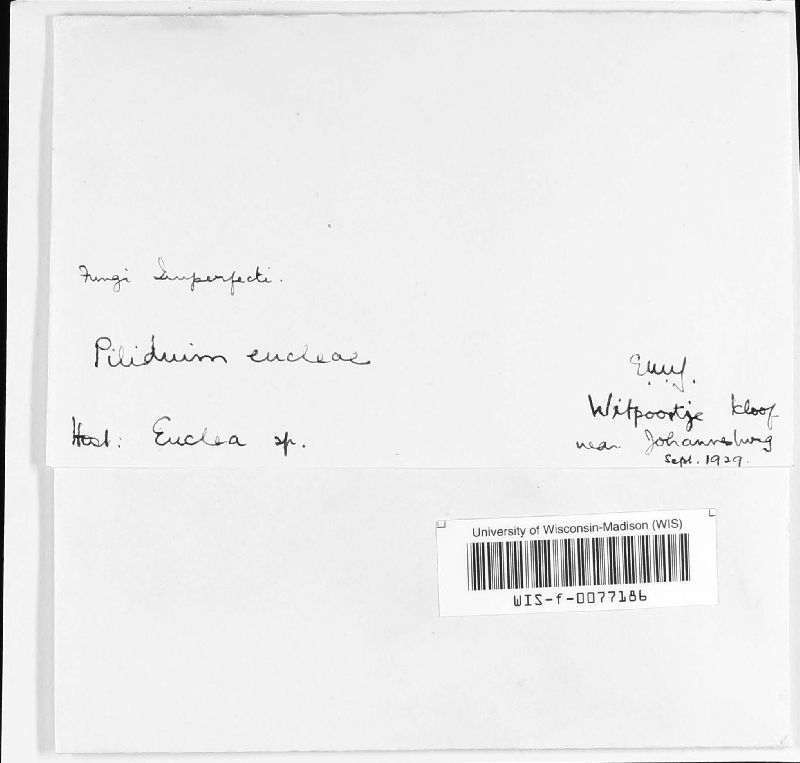 Fungi Imperfecti.
Piliduim eucleae
Host: Euclea sp.
Witpoortje kloof
near Johannesburg
Sept. 1929.
University of Wisconsin-Madison (WIS)
WIS-f-0077186